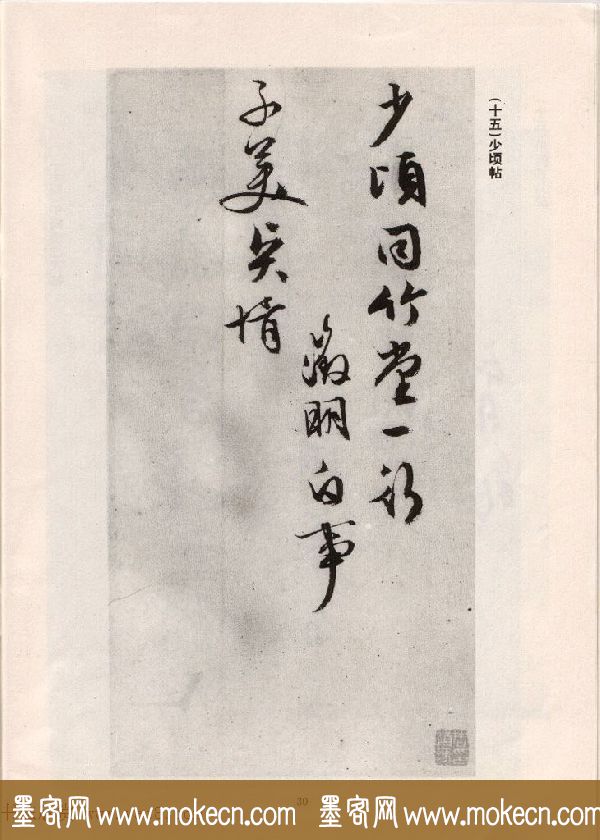 (十五)少顷帖
少頃同竹堂一行
徵明白事
子美情
30
墨客网 www.mokecn.com 墨客网 www.mokecn.com